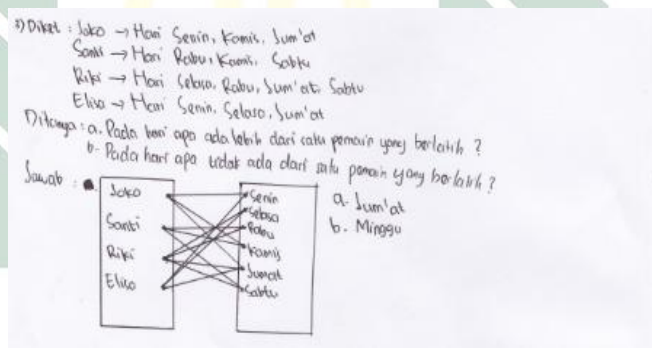 3) Diket : Joko → Hari Senin, Kamis, Jum'at
Santi → Hari Rabu, Kamis, Sabtu
Riki → Hari Selasa, Rabu, Jum'at, Sabtu
Elisa → Hari Senin, Selasa, Jum'at
Ditanya : a. Pada hari apa ada lebih dari satu pemain yang berlatih ?
b. Pada hari apa tidak ada dari satu pemain yang berlatih ?
Jawab :
Joko
Santi
Riki
Elisa
Senin
Selasa
Rabu
Kamis
Jumat
Sabtu
a. Jum'at
b. Minggu